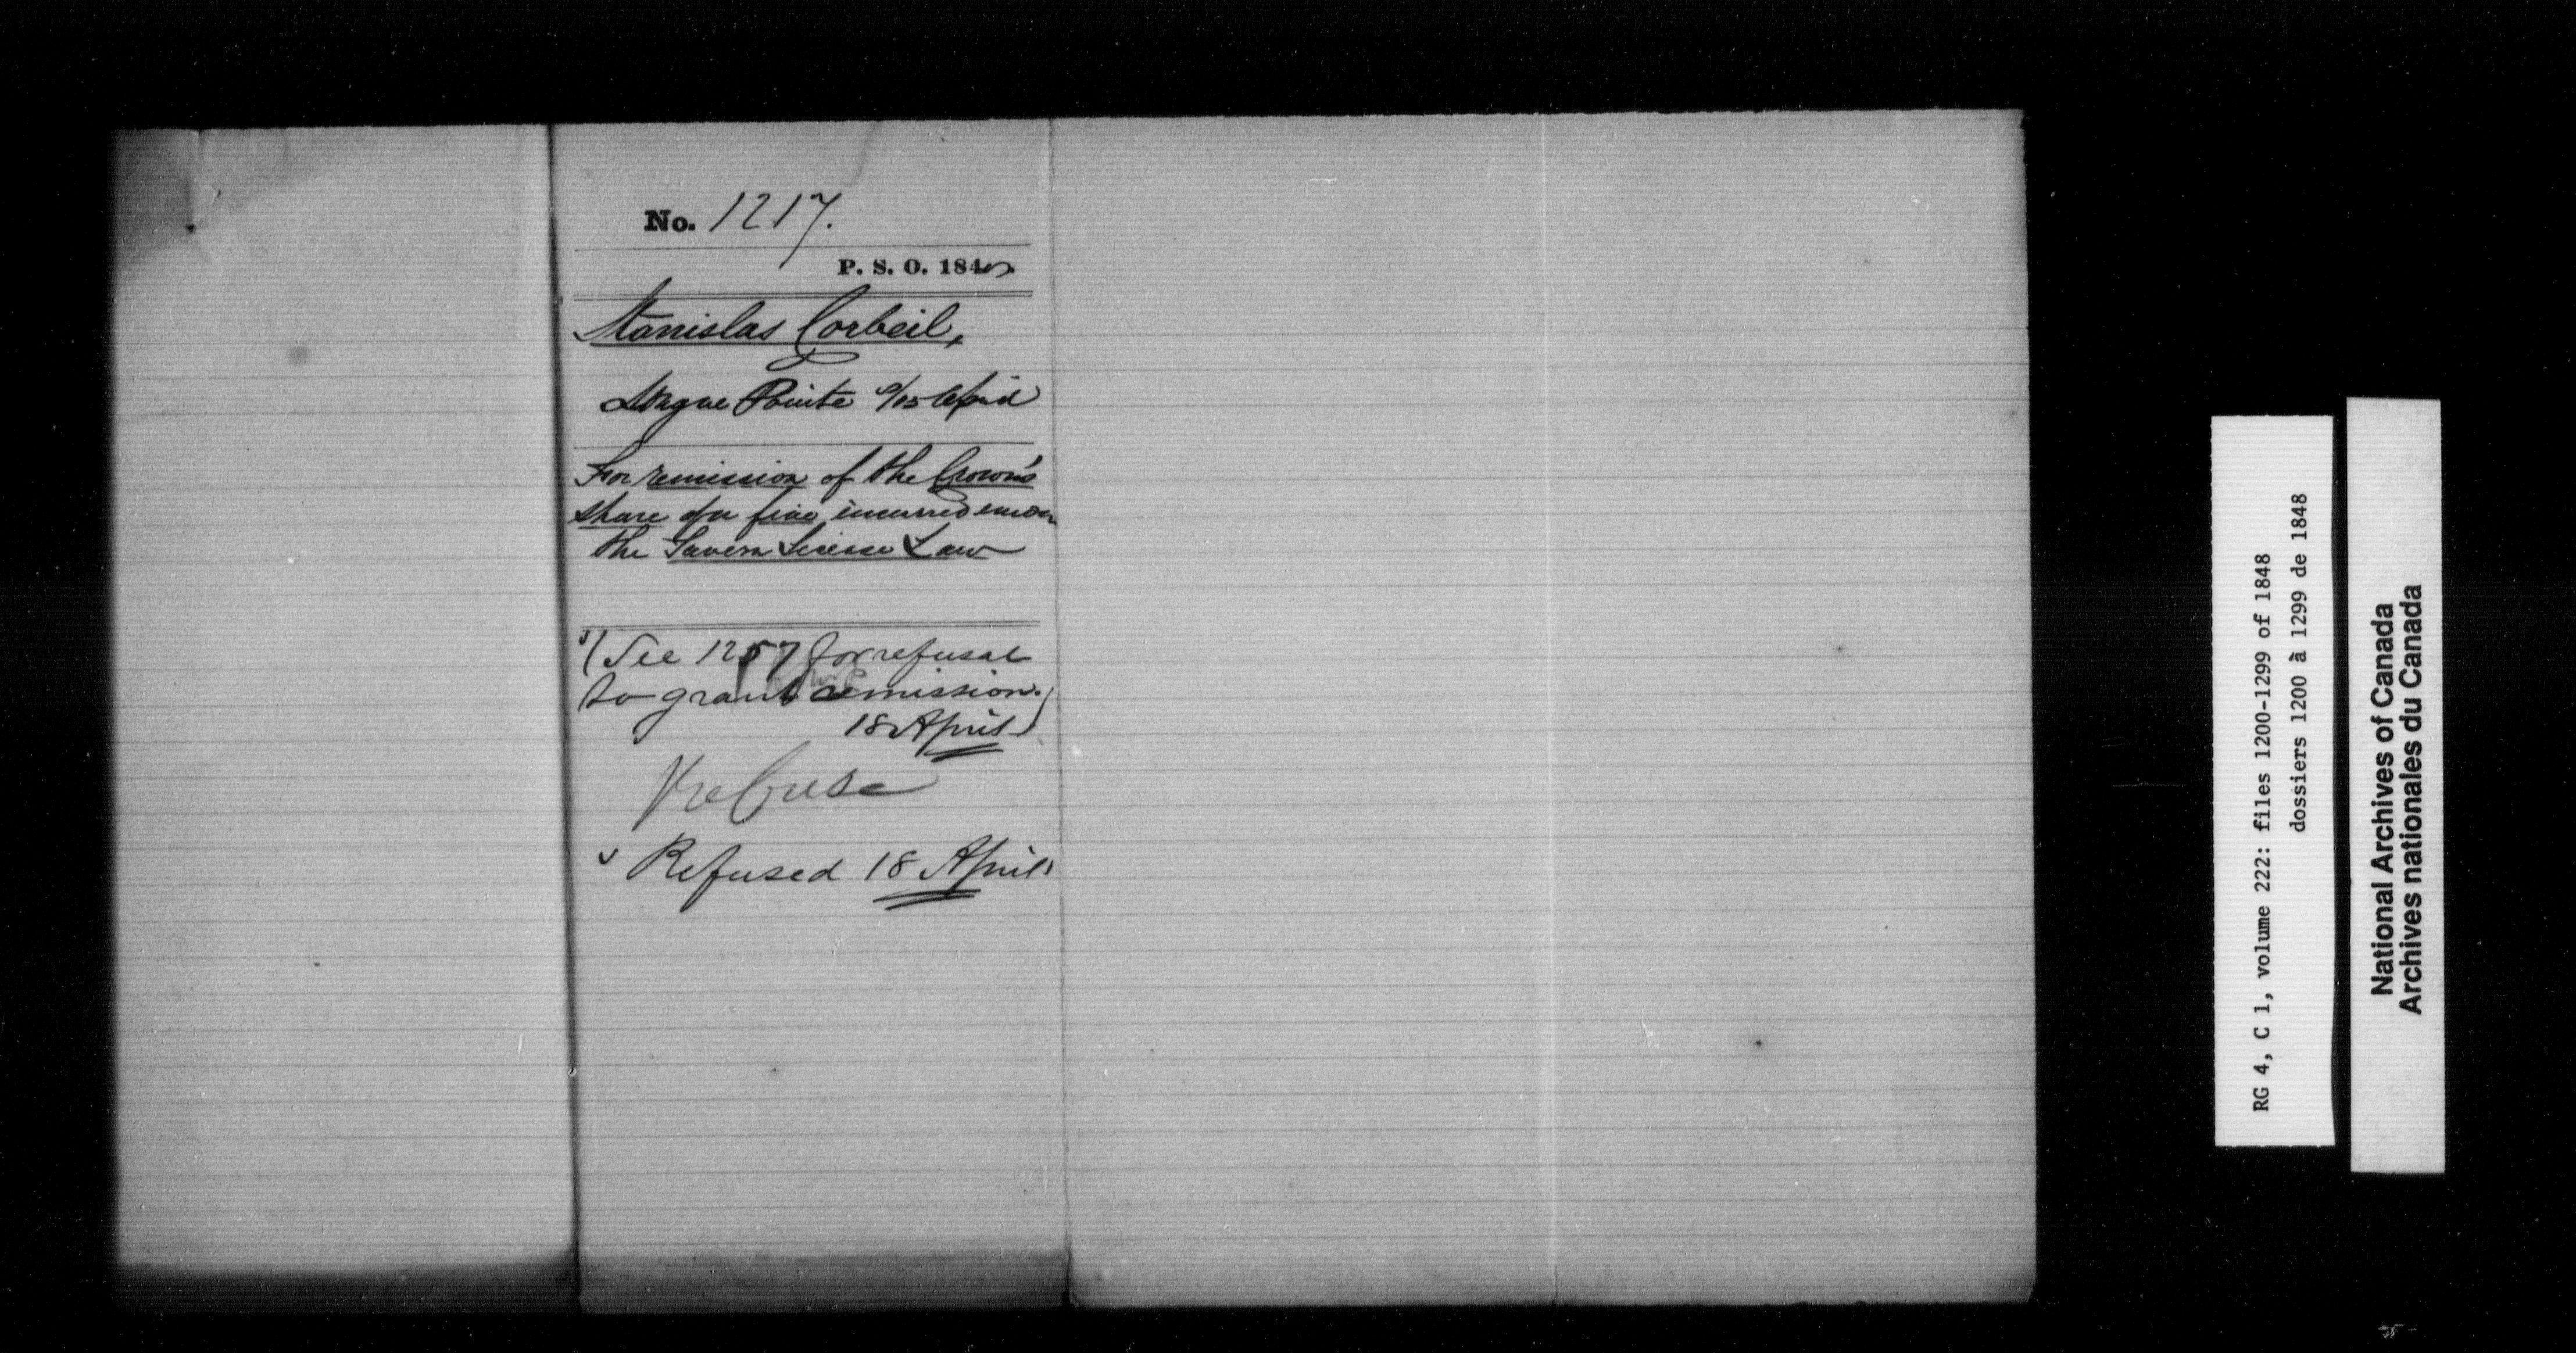 No. 1217.
P. S. O. 184
Stanislas Corbeil,
Longue Pointe 9/15 April
For remission of the Crown's
share of a fine incurred under
the Tavern License Law
(See 1257 for refusal
to grant remission.)
18 April
Refuse
Refused 18 April
RG 4, C 1, volume 222: files 1200-1299 of 1848
dossiers 1200 à 1299 de 1848
National Archives of Canada
Archives nationales du Canada